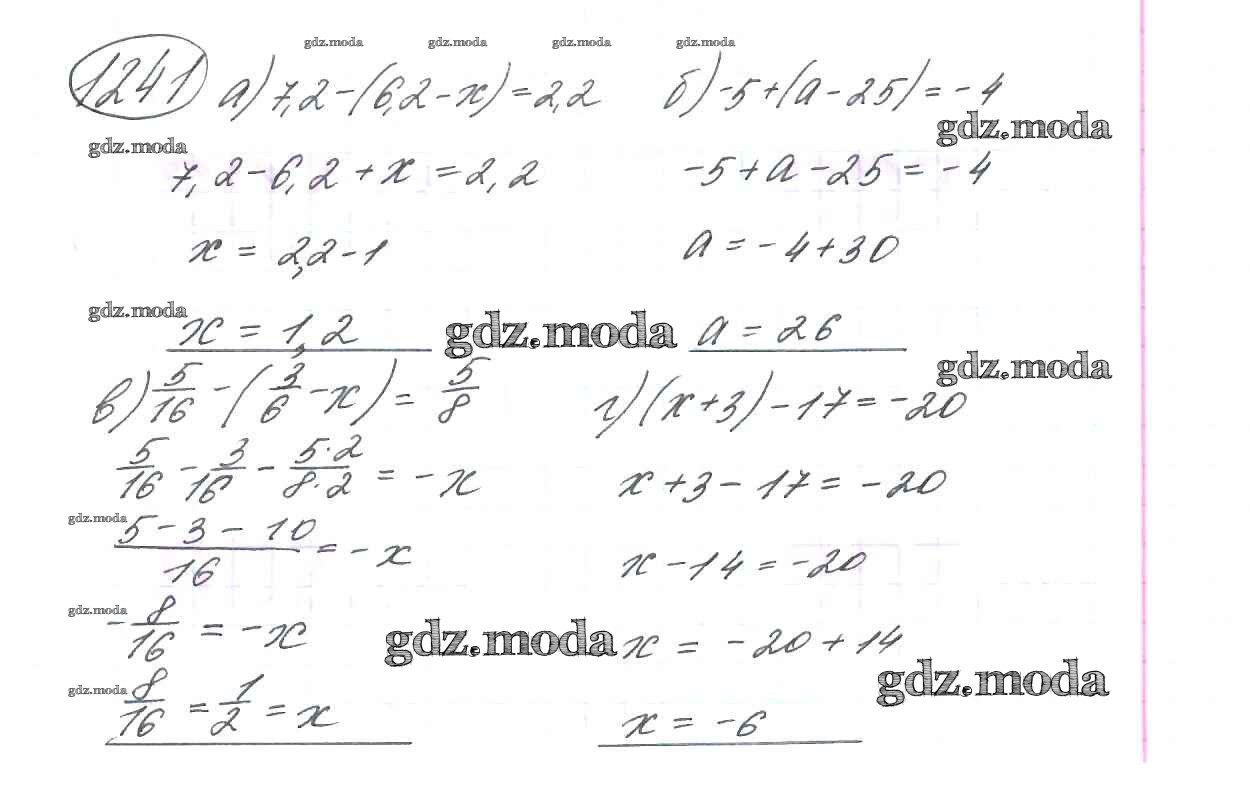 gdz.moda gdz.moda gdz.moda gdz.moda
1241 а) 7,2 - (6,2 - х) = 2,2
gdz.moda
7,2 - 6,2 + х = 2,2
х = 2,2 - 1
gdz.moda
х = 1,2
gdz.moda
б) -5 + (а - 25) = -4
gdz.moda
-5 + а - 25 = -4
а = -4 + 30
а = 26
gdz.moda
в) 5/16 - (3/6 - х) = 5/8
5/16 - 3/16 - 5·2/8·2 = -х
gdz.moda
5 - 3 - 10/16 = -х
gdz.moda
-8/16 = -х
gdz.moda
gdz.moda
8/16 = 1/2 = х
г) (х + 3) - 17 = -20
х + 3 - 17 = -20
х - 14 = -20
х = -20 + 14
gdz.moda
х = -6